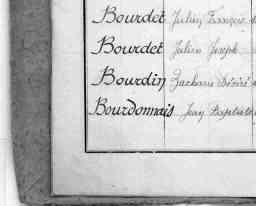 Bourdet Julien François
Bourdet Julien Joseph
Bourdin Zacharie Désiré
Bourdonnais Jean Baptiste